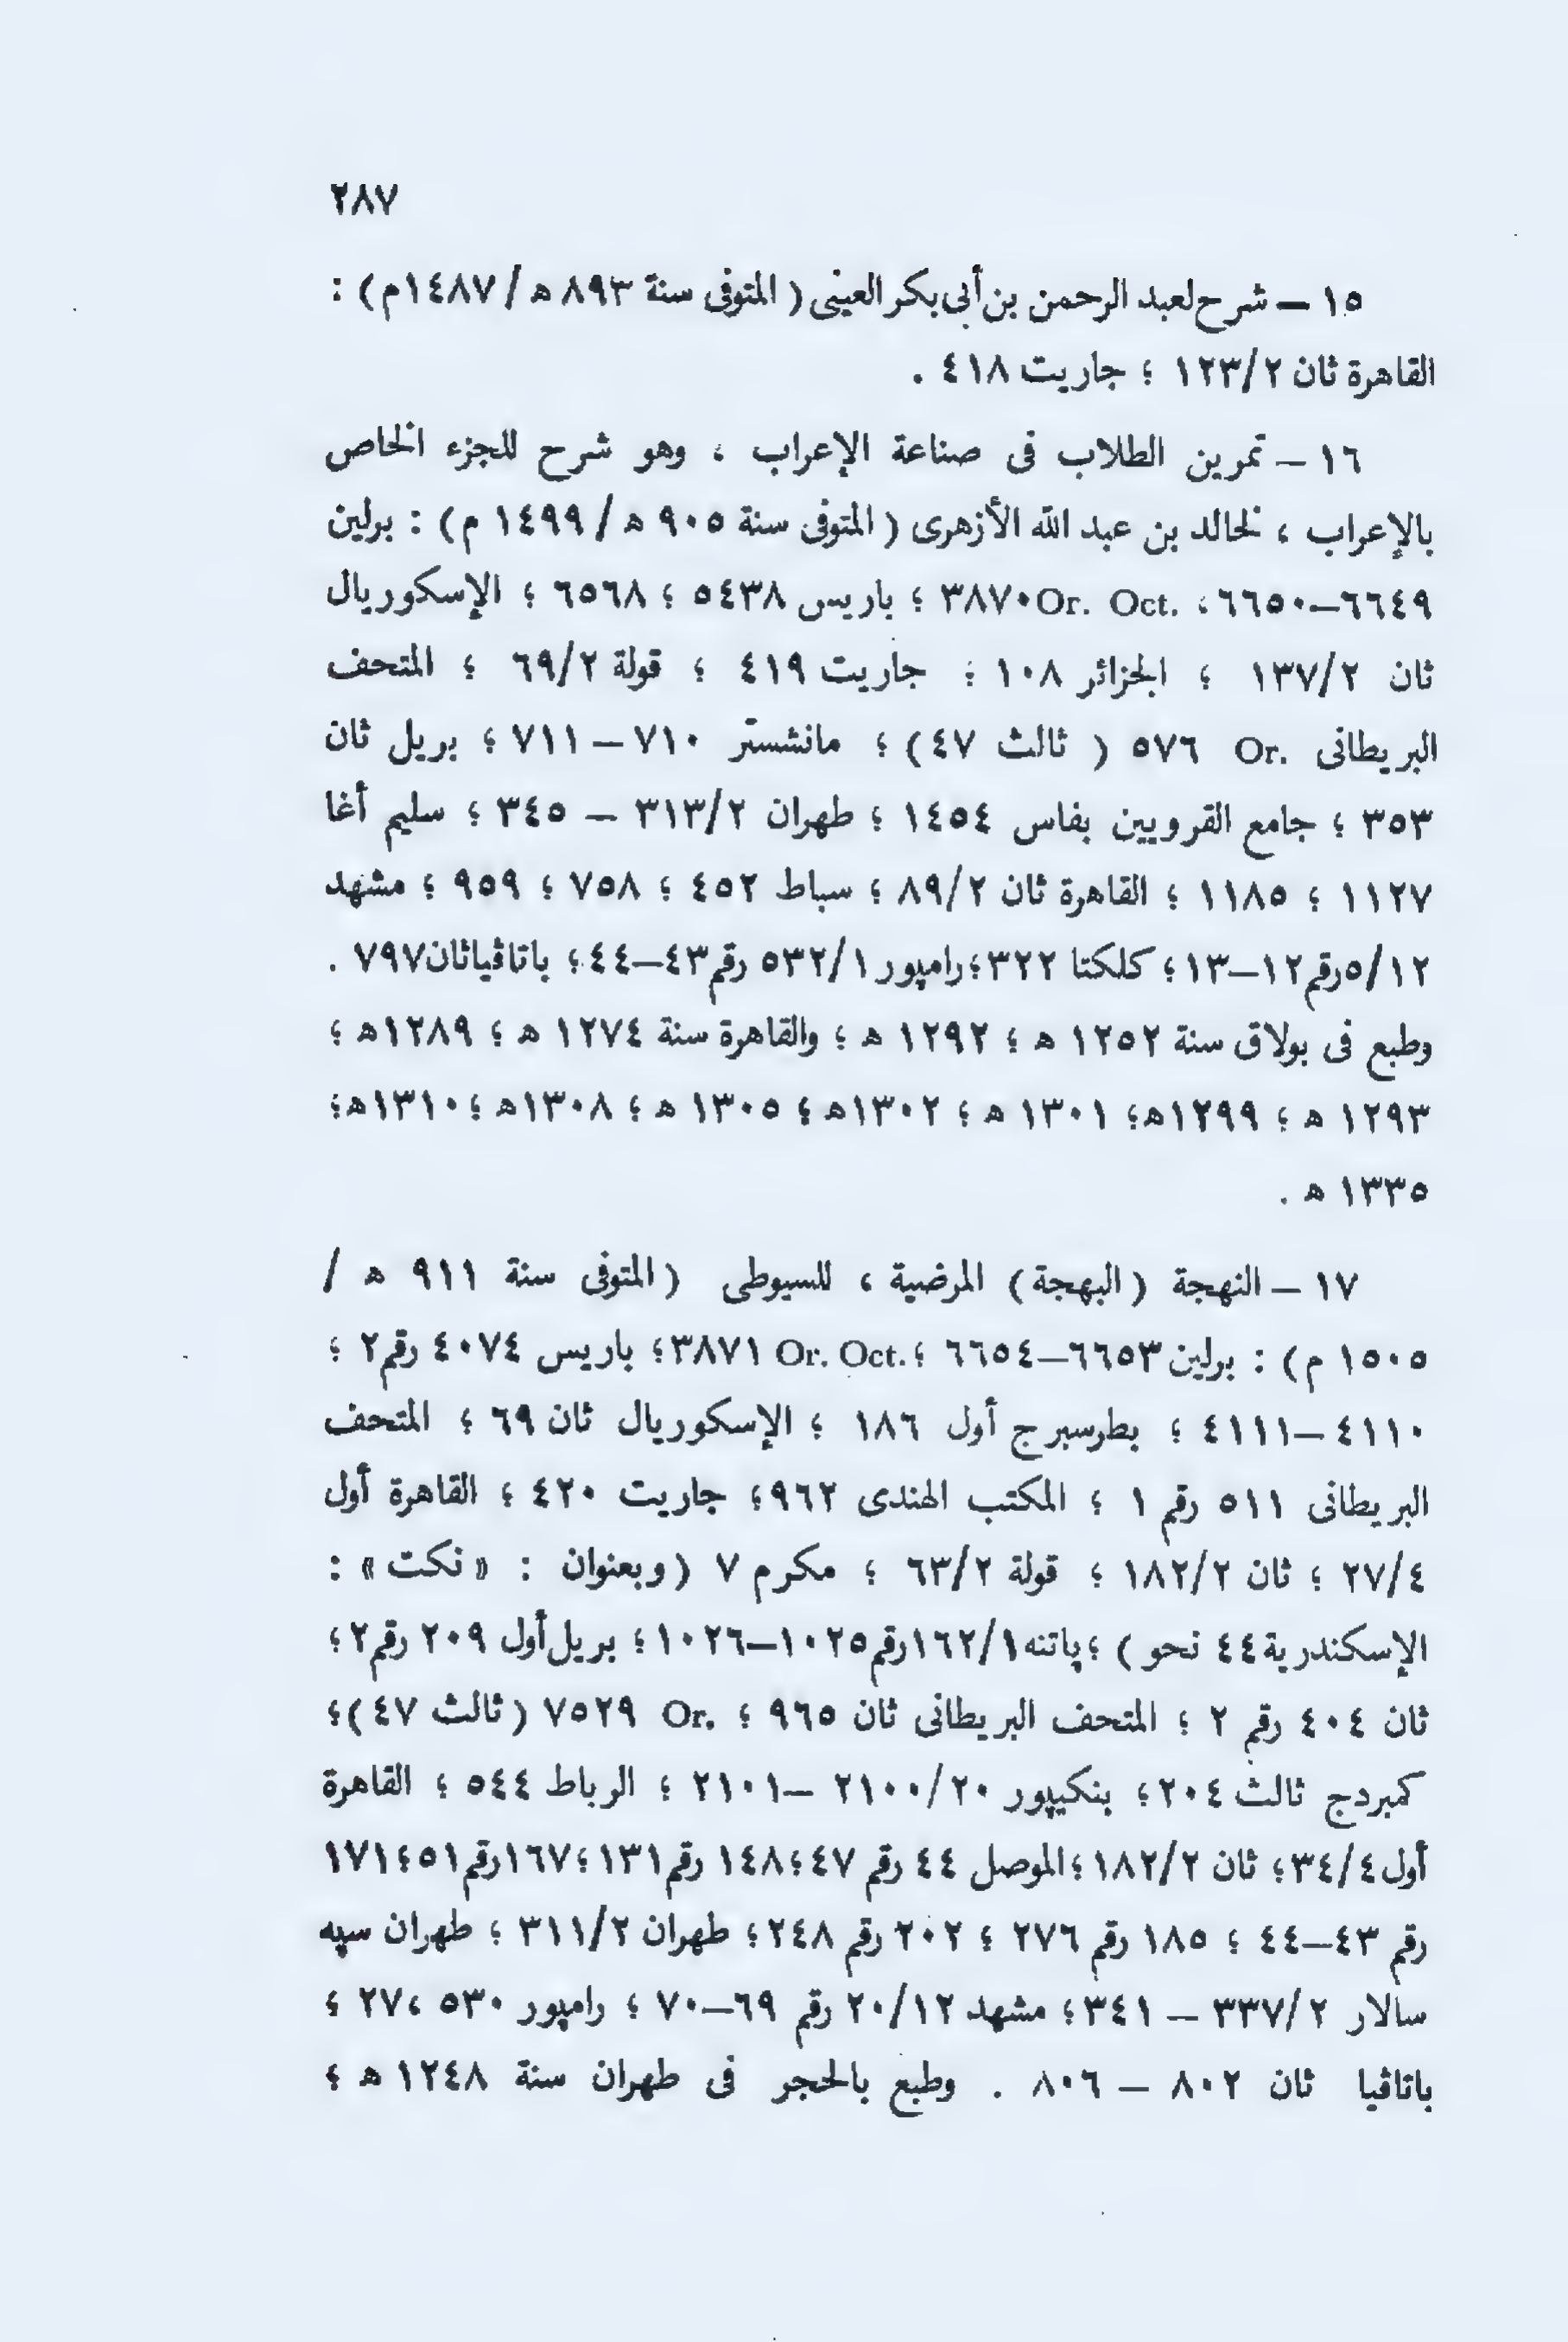 ٢٨٧
١٥ – شرح لعبد الرحمن بن أبى بكر العينى ( المتوفى سنة ٨٩٣ ه / ١٤٨٧م ) :
القاهرة ثان ١٢٣/٢ ؛ جاريت ٤١٨ .
١٦ – تمرين الطلاب فى صناعة الإعراب ، وهو شرح للجزء الخاص
بالإعراب ، لخالد بن عبد الله الأزهرى ( المتوفى سنة ٩٠٥ ه / ١٤٩٩ م ) : برلين
٦٦٤٩–٦٦٥٠، .Or. Oct ٣٨٧٠ ؛ باريس ٥٤٣٨ ؛ ٦٥٦٨ ؛ الإسكوريال
ثان ١٣٧/٢ ؛ الجزائر ١٠٨ ؛ جاريت ٤١٩ ؛ قولة ٦٩/٢ ؛ المتحف
البريطانى .Or ٥٧٦ ( ثالث ٤٧ ) ؛ مانشستر ٧١٠ – ٧١١ ؛ بريل ثان
٣٥٣ ؛ جامع القرويين بفاس ١٤٥٤ ؛ طهران ٣١٣/٢ – ٣٤٥ ؛ سليم أغا
١١٢٧ ؛ ١١٨٥ ؛ القاهرة ثان ٨٩/٢ ؛ سباط ٤٥٢ ؛ ٧٥٨ ؛ ٩٥٩ ؛ مشهد
٥/١٢ رقم ١٢–١٣ ؛ كلكتا ٣٢٢ ؛ رامپور ٥٣٢/١ رقم ٤٣–٤٤ ؛ باتاڤيا ثان ٧٩٧ .
وطبع فى بولاق سنة ١٢٥٢ ه ؛ ١٢٩٢ ه ؛ والقاهرة سنة ١٢٧٤ ه ؛ ١٢٨٩ه ؛
١٢٩٣ ه ؛ ١٢٩٩ه ؛ ١٣٠١ ه ؛ ١٣٠٢ه ؛ ١٣٠٥ ه ؛ ١٣٠٨ه ؛ ١٣١٠ه ؛
١٣٣٥ ه .
١٧ – النهجة ( البهجة ) المرضية ، للسيوطى ( المتوفى سنة ٩١١ ه /
١٥٠٥ م ) : برلين ٦٦٥٣–٦٦٥٤ ؛ .Or. Oct ٣٨٧١ ؛ باريس ٤٠٧٤ رقم ٢ ؛
٤١١٠–٤١١١ ؛ بطرسبرج أول ١٨٦ ؛ الإسكوريال ثان ٦٩ ؛ المتحف
البريطانى ٥١١ رقم ١ ؛ المكتب الهندى ٩٦٢ ؛ جاريت ٤٢٠ ؛ القاهرة أول
٢٧/٤ ؛ ثان ١٨٢/٢ ؛ قولة ٦٣/٢ ؛ مكرم ٧ ( وبعنوان : « نكت » :
الإسكندرية ٤٤ نحو ) ؛ پاتنه ١٦٢/١ رقم ١٠٢٥–١٠٢٦ ؛ بريل أول ٢٠٩ رقم ٢ ؛
ثان ٤٠٤ رقم ٢ ؛ المتحف البريطانى ثان ٩٦٥ ؛ .Or ٧٥٢٩ ( ثالث ٤٧ ) ؛
كمبردج ثالث ٢٠٤ ؛ بنكيپور ٢١٠٠/٢٠ –٢١٠١ ؛ الرباط ٥٤٤ ؛ القاهرة
أول ٣٤/٤ ؛ ثان ١٨٢/٢ ؛ الموصل ٤٤ رقم ٤٧ ؛ ١٤٨ رقم ١٣١ ؛ ١٦٧ رقم ٥١ ؛ ١٧١
رقم ٤٣–٤٤ ؛ ١٨٥ رقم ٢٧٦ ؛ ٢٠٢ رقم ٢٤٨ ؛ طهران ٣١١/٢ ؛ طهران سپه
سالار ٣٣٧/٢ – ٣٤١ ؛ مشهد ٢٠/١٢ رقم ٦٩–٧٠ ؛ رامپور ٥٣٠ ،٢٧ ؛
باتاڤيا ثان ٨٠٢ – ٨٠٦ . وطبع بالحجر فى طهران سنة ١٢٤٨ ه ؛